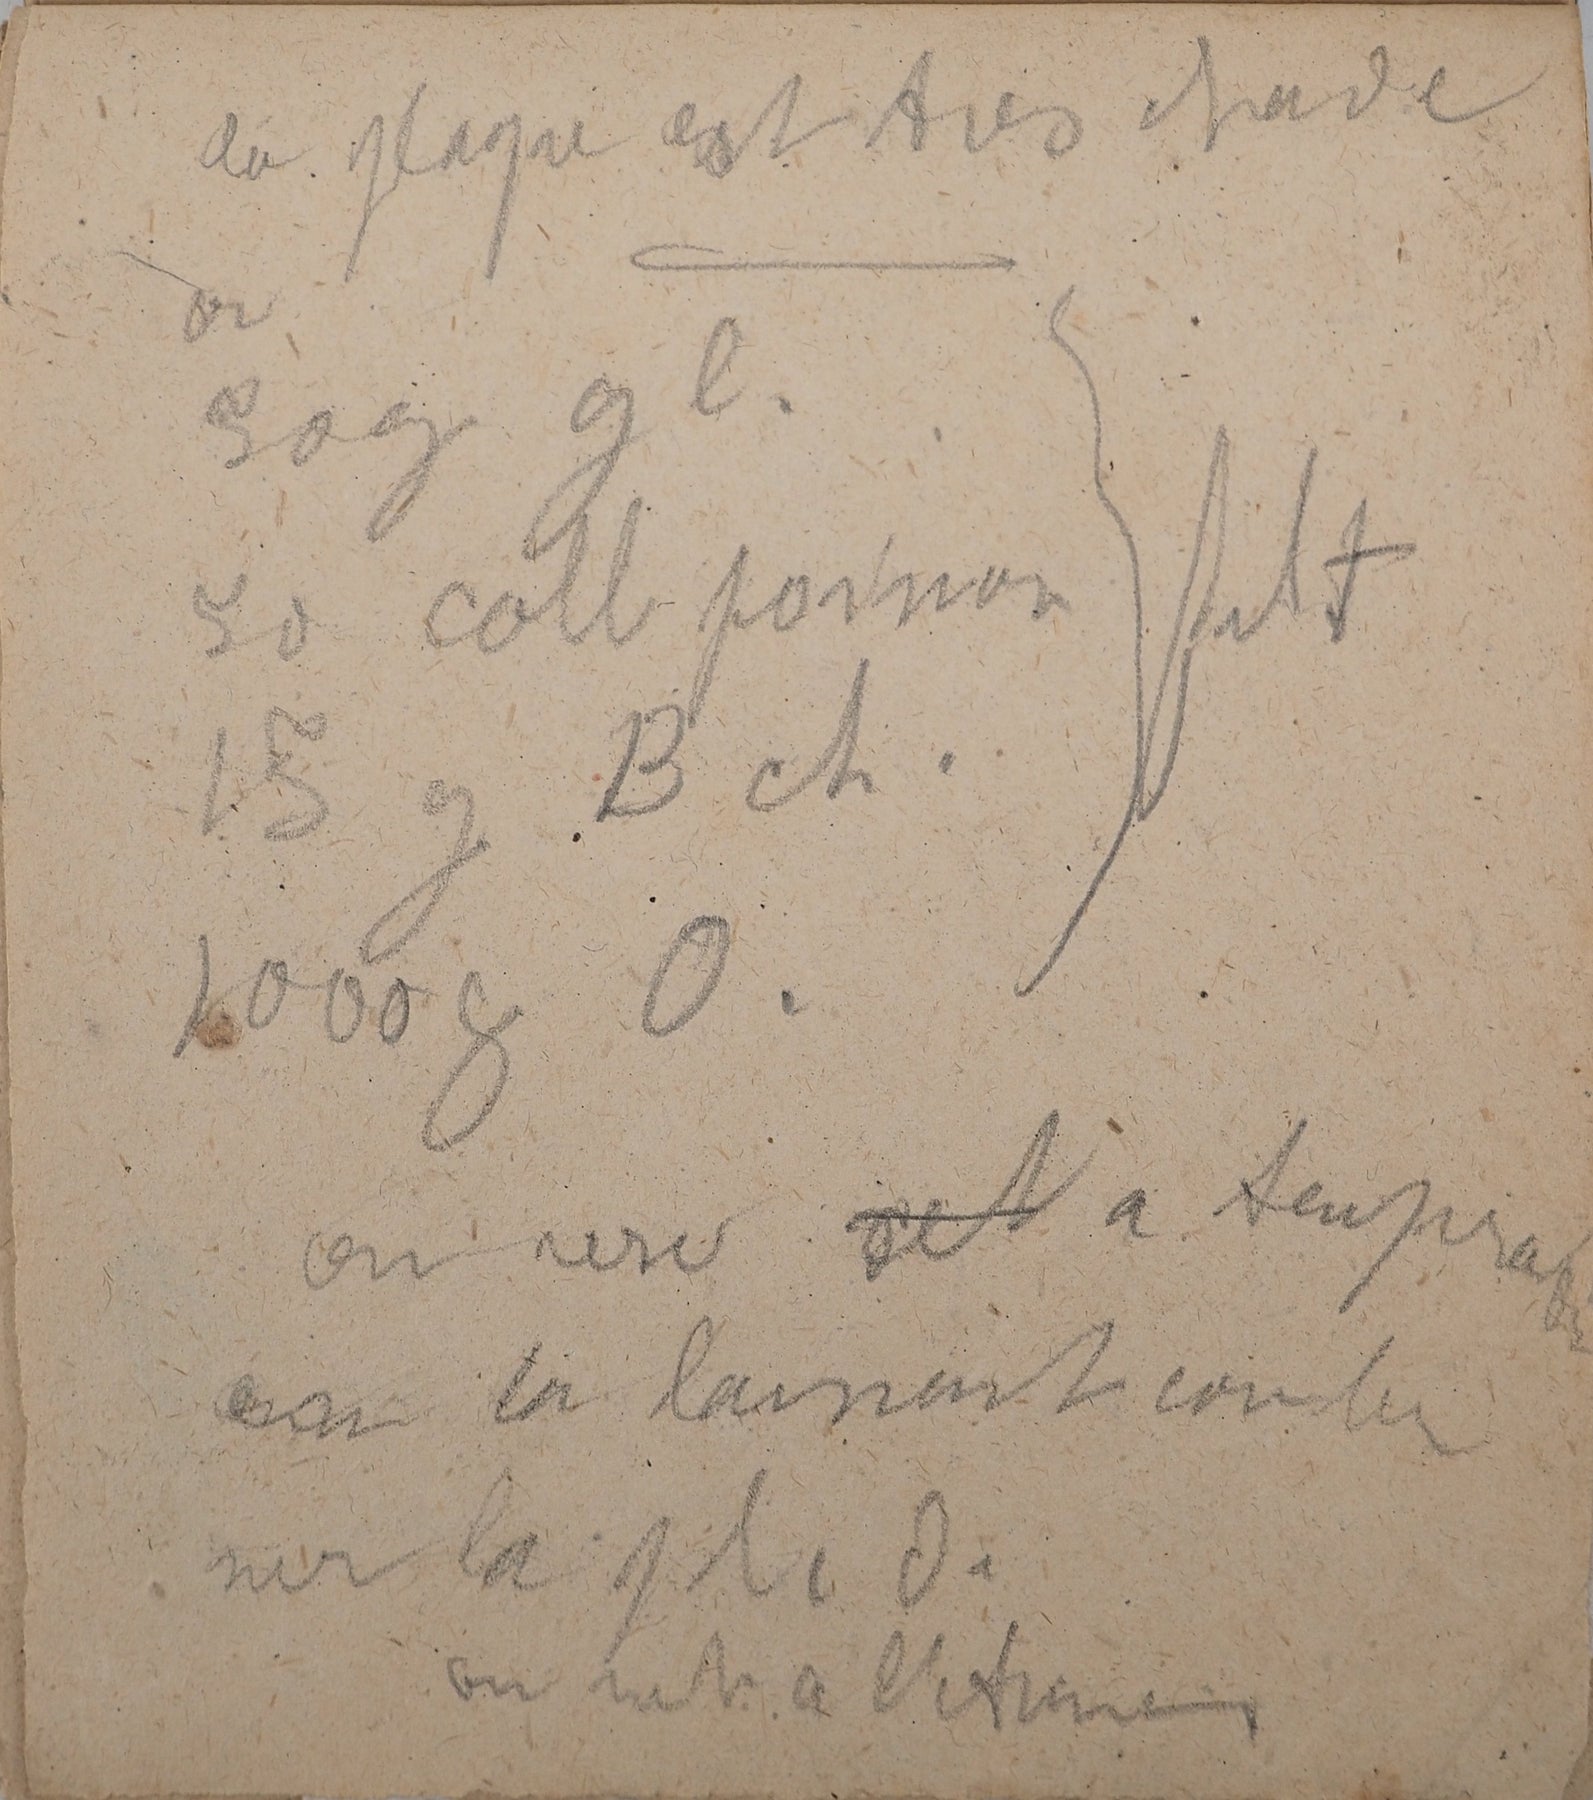 la plaque est tres chade
ou
50g gl.
50 coll poisson
15 g B ch.
1000g O.
filt
on verse a temprat
en la laissant couler
sur la pl. O.
on met a l'etuve